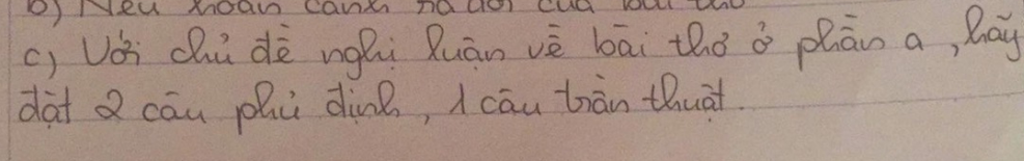 b) Nêu hoàn cảnh ra đời của bài thơ
c) Với chủ đề nghị luận về bài thơ ở phần a, hãy
đặt 2 câu phủ định, 1 câu trần thuật.